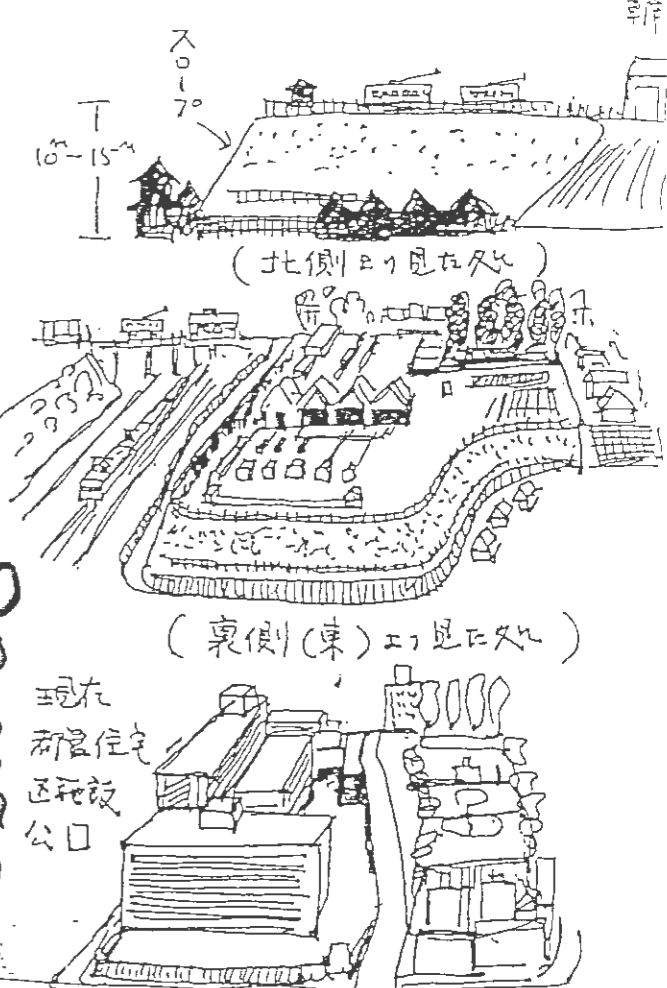 スロープ
10m〜15m
(北側より見た処)
(裏側(東)より見た処)
現在
都営住宅
区施設
公口